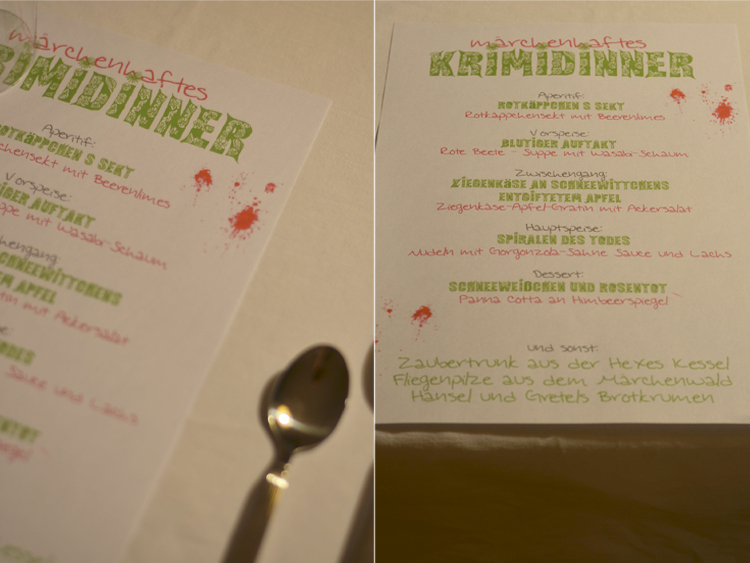 märchenhaftes
KRIMIDINNER
Aperitif:
ROTKÄPPCHEN S SEKT
chensekt mit Beerenlimes
Vorspeise:
IGER AUFTAKT
ppe mit Wasabi-Schaum
chengang:
SCHNEEWITTCHENS
TEM APFEL
atin mit Ackersalat
e:
TODES
Sauce und Lachs
märchenhaftes
KRIMIDINNER
Aperitif:
ROTKÄPPCHEN S SEKT
Rotkäppchensekt mit Beerenlimes
Vorspeise:
BLUTIGER AUFTAKT
Rote Beete - Suppe mit Wasabi-Schaum
Zwischengang:
ZIEGENKÄSE AN SCHNEEWITTCHENS
ENTGIFTETEM APFEL
Ziegenkäse-Apfel-Gratin mit Ackersalat
Hauptspeise:
SPIRALEN DES TODES
Nudeln mit Gorgonzola-Sahne Sauce und Lachs
Dessert:
SCHNEEWEIßCHEN UND ROSENTOT
Panna Cotta an Himbeerspiegel
und sonst:
Zaubertrunk aus der Hexes Kessel
Fliegenpilze aus dem Märchenwald
Hänsel und Gretels Brotkrumen